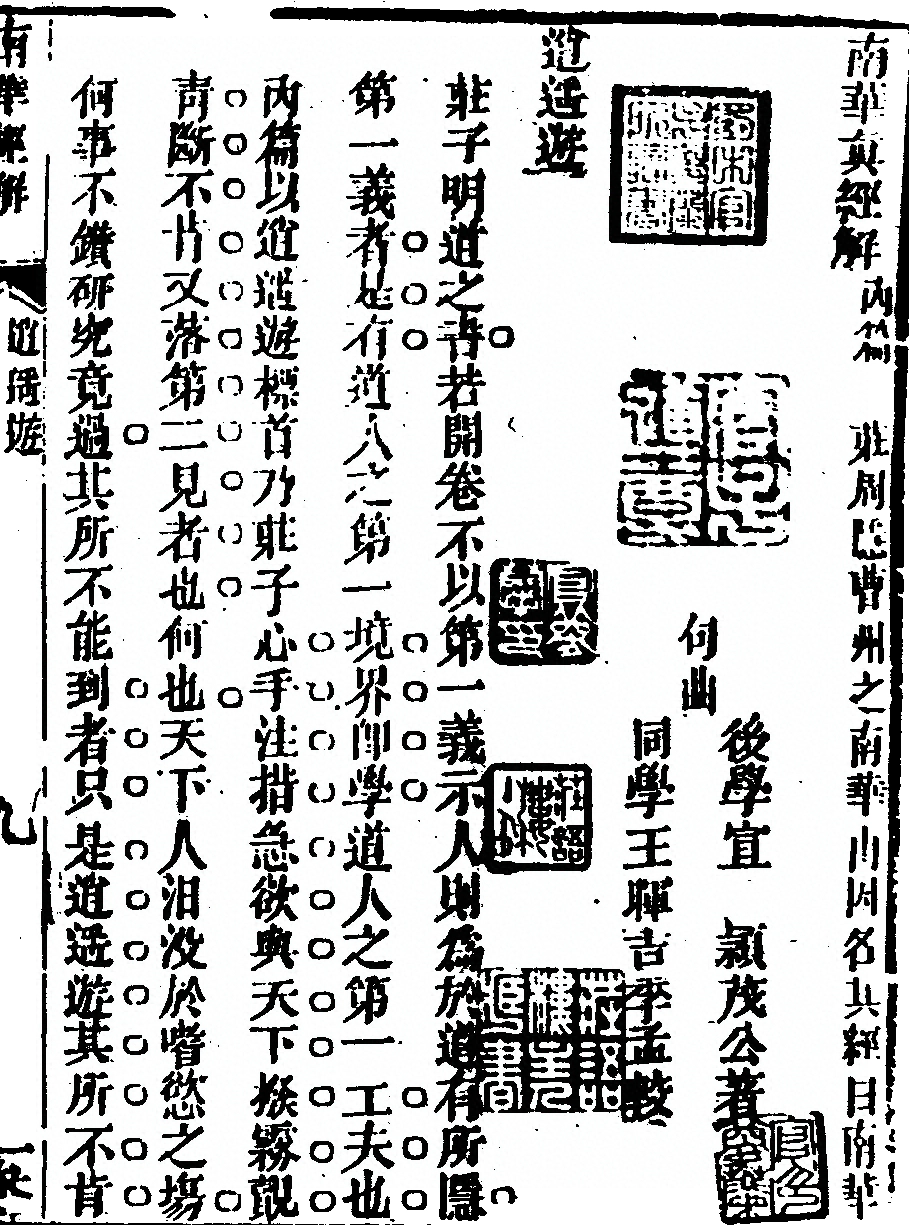 南華眞經解內篇 莊周隱曹州之南華山因名其經曰南華
句曲
後學宜 穎茂公著
同學王暉吉季孟較
逍遙遊
莊子明道之書若開卷不以第一義示人則為於道有所隱
第一義者是有道人之第一境界即學道人之第一工夫也
內篇以逍遙遊標首乃莊子心手注措急欲與天下撥霧覩
青斷不肯又落第二見者也何也天下人汨沒於嗜慾之場
何事不鑽研究竟過其所不能到者只是逍遙遊其所不肯
南華經解
逍遙遊
九